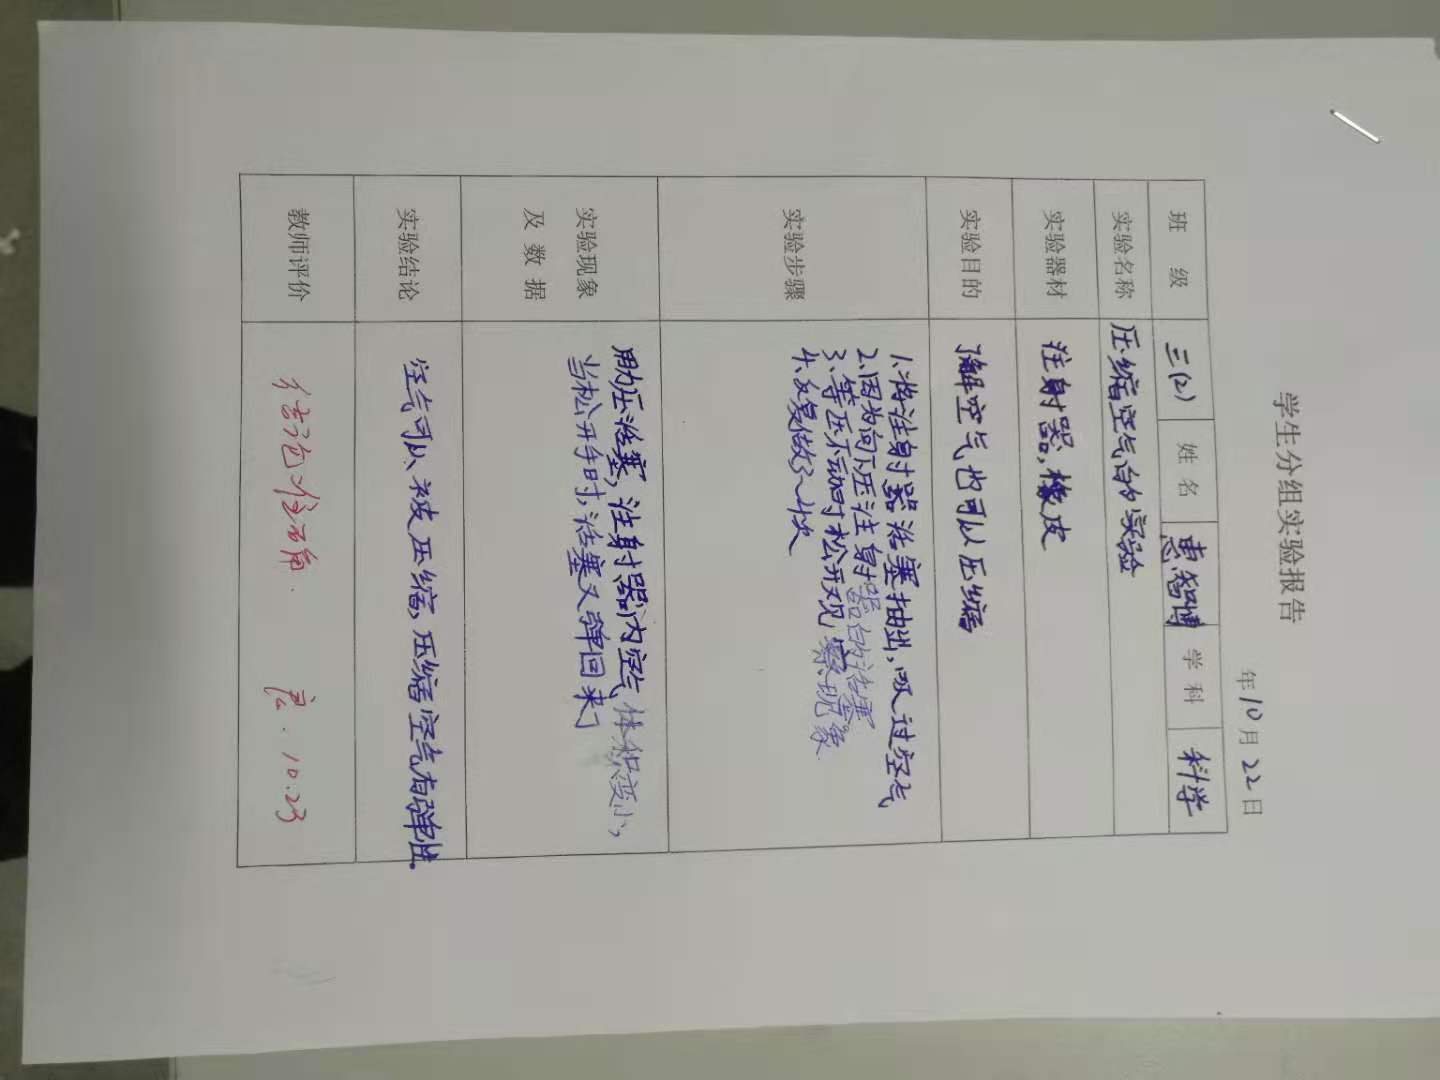 学生分组实验报告
年10月22日
班 级 三(2) 姓 名 惠智博 学 科 科学
实验名称 压缩空气的实验
实验器材 注射器,橡皮
实验目的 了解空气也可以压缩
实验步骤
1.将注射器活塞抽出,吸过空气
2.因为向下压注射器的活塞。
3.等压不动时松开观察现象
4.反复做3~4次
实验现象
及 数 据
用力压活塞,注射器内空气体积变小,
当松开手时,活塞又弹回来了
实验结论 空气可以被压缩,压缩空气有弹性.
教师评价 结论准确. 良. 10.23